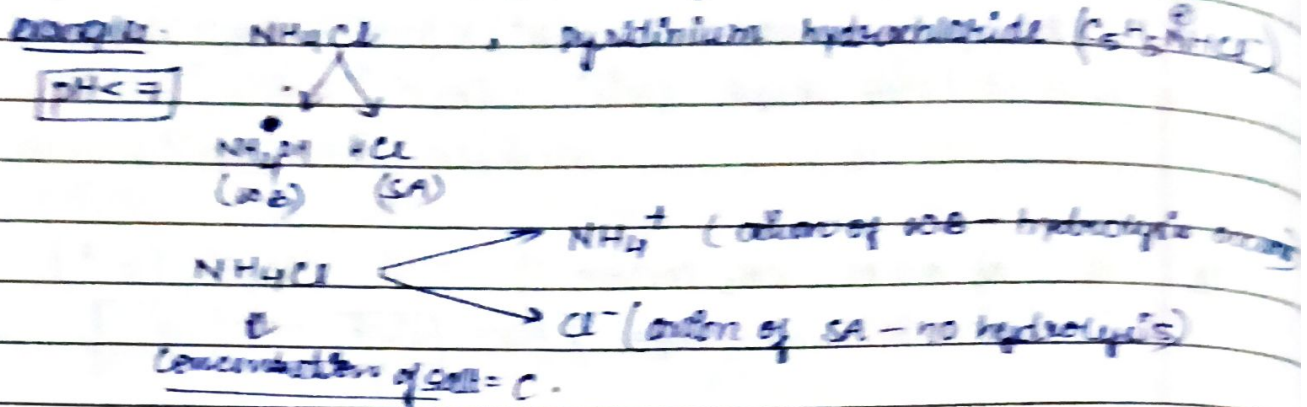 Example- NH4Cl , pyridinium hydrochloride (C5H5N⊕HCl-)
pH< 7
NH4OH HCl
(WB) (SA)
NH4+ (cation of WB - hydrolysis occurs)
NH4Cl
Cl- (anion of SA - no hydrolysis)
C
Concentration of salt = C.